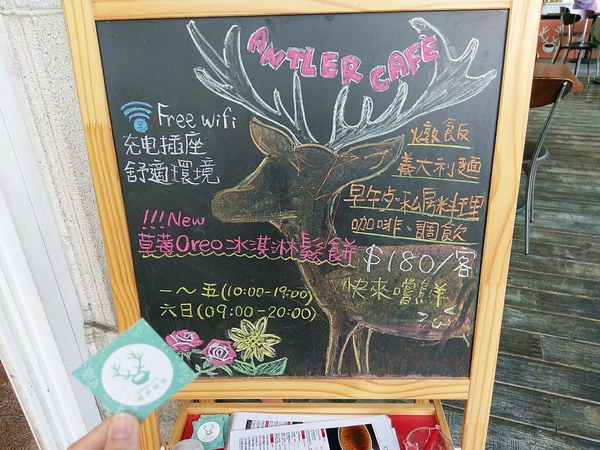 ANTLER CAFE
Free wifi
充电插座
舒適環境
燉飯
義大利麵
早午歺、私房料理
咖啡、調飲
!!!New
草莓Oreo冰淇淋鬆餅
$180/客
快來嚐鮮
一～五(10:00-19:00)
六日(09:00-20:00)